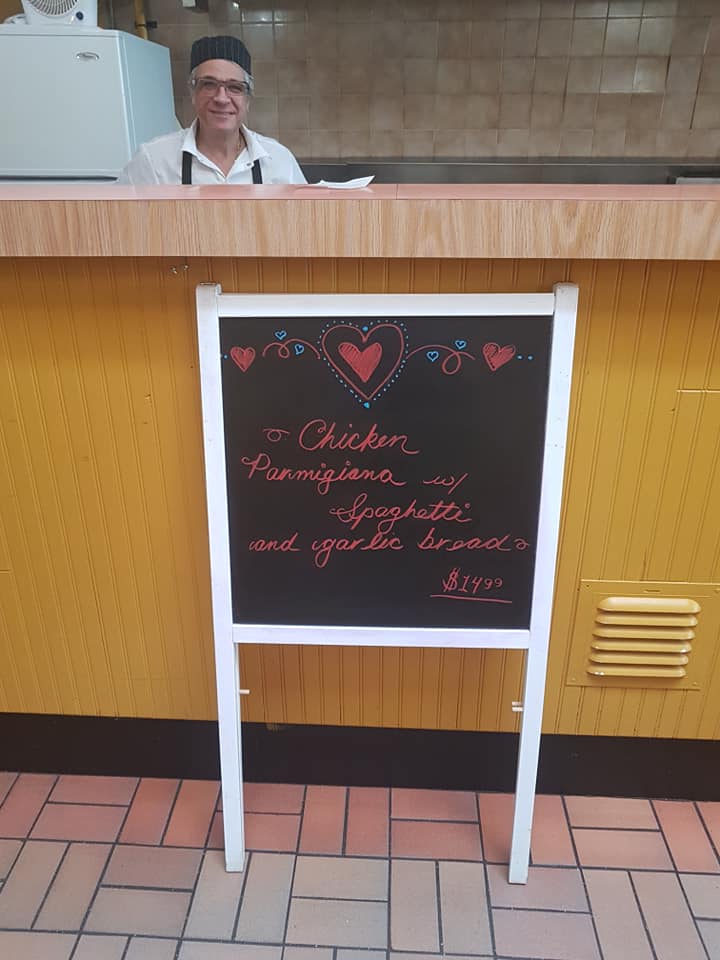 Chicken
Parmigiana w/
Spaghetti
and garlic bread
$14.99